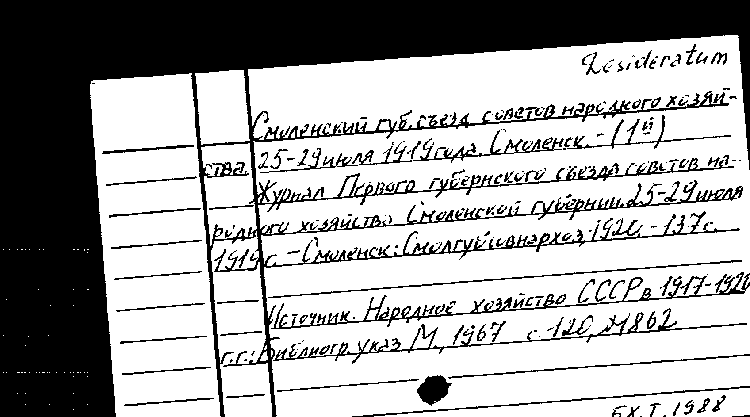 Desideratum
Смоленский губ. съезд советов народного хозяй-
ства. 25-29 июля 1919 года. Смоленск. - (1й)
Журнал Первого губернского съезда советов на-
родного хозяйства Смоленской губернии 25-29 июля
1919 г. - Смоленск: Смолгубсовнархоз, 1920. - 137 с.
Источник. Народное хозяйство СССР в 1917-1920
г.г.: Библиогр. указ М., 1967 с. 120, №1862
БХ.Т.1988